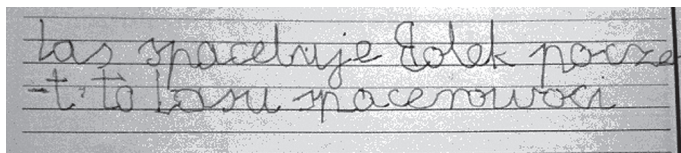 tas spaceruje Lolek po-cze
-t. to Lasu spacerowoci